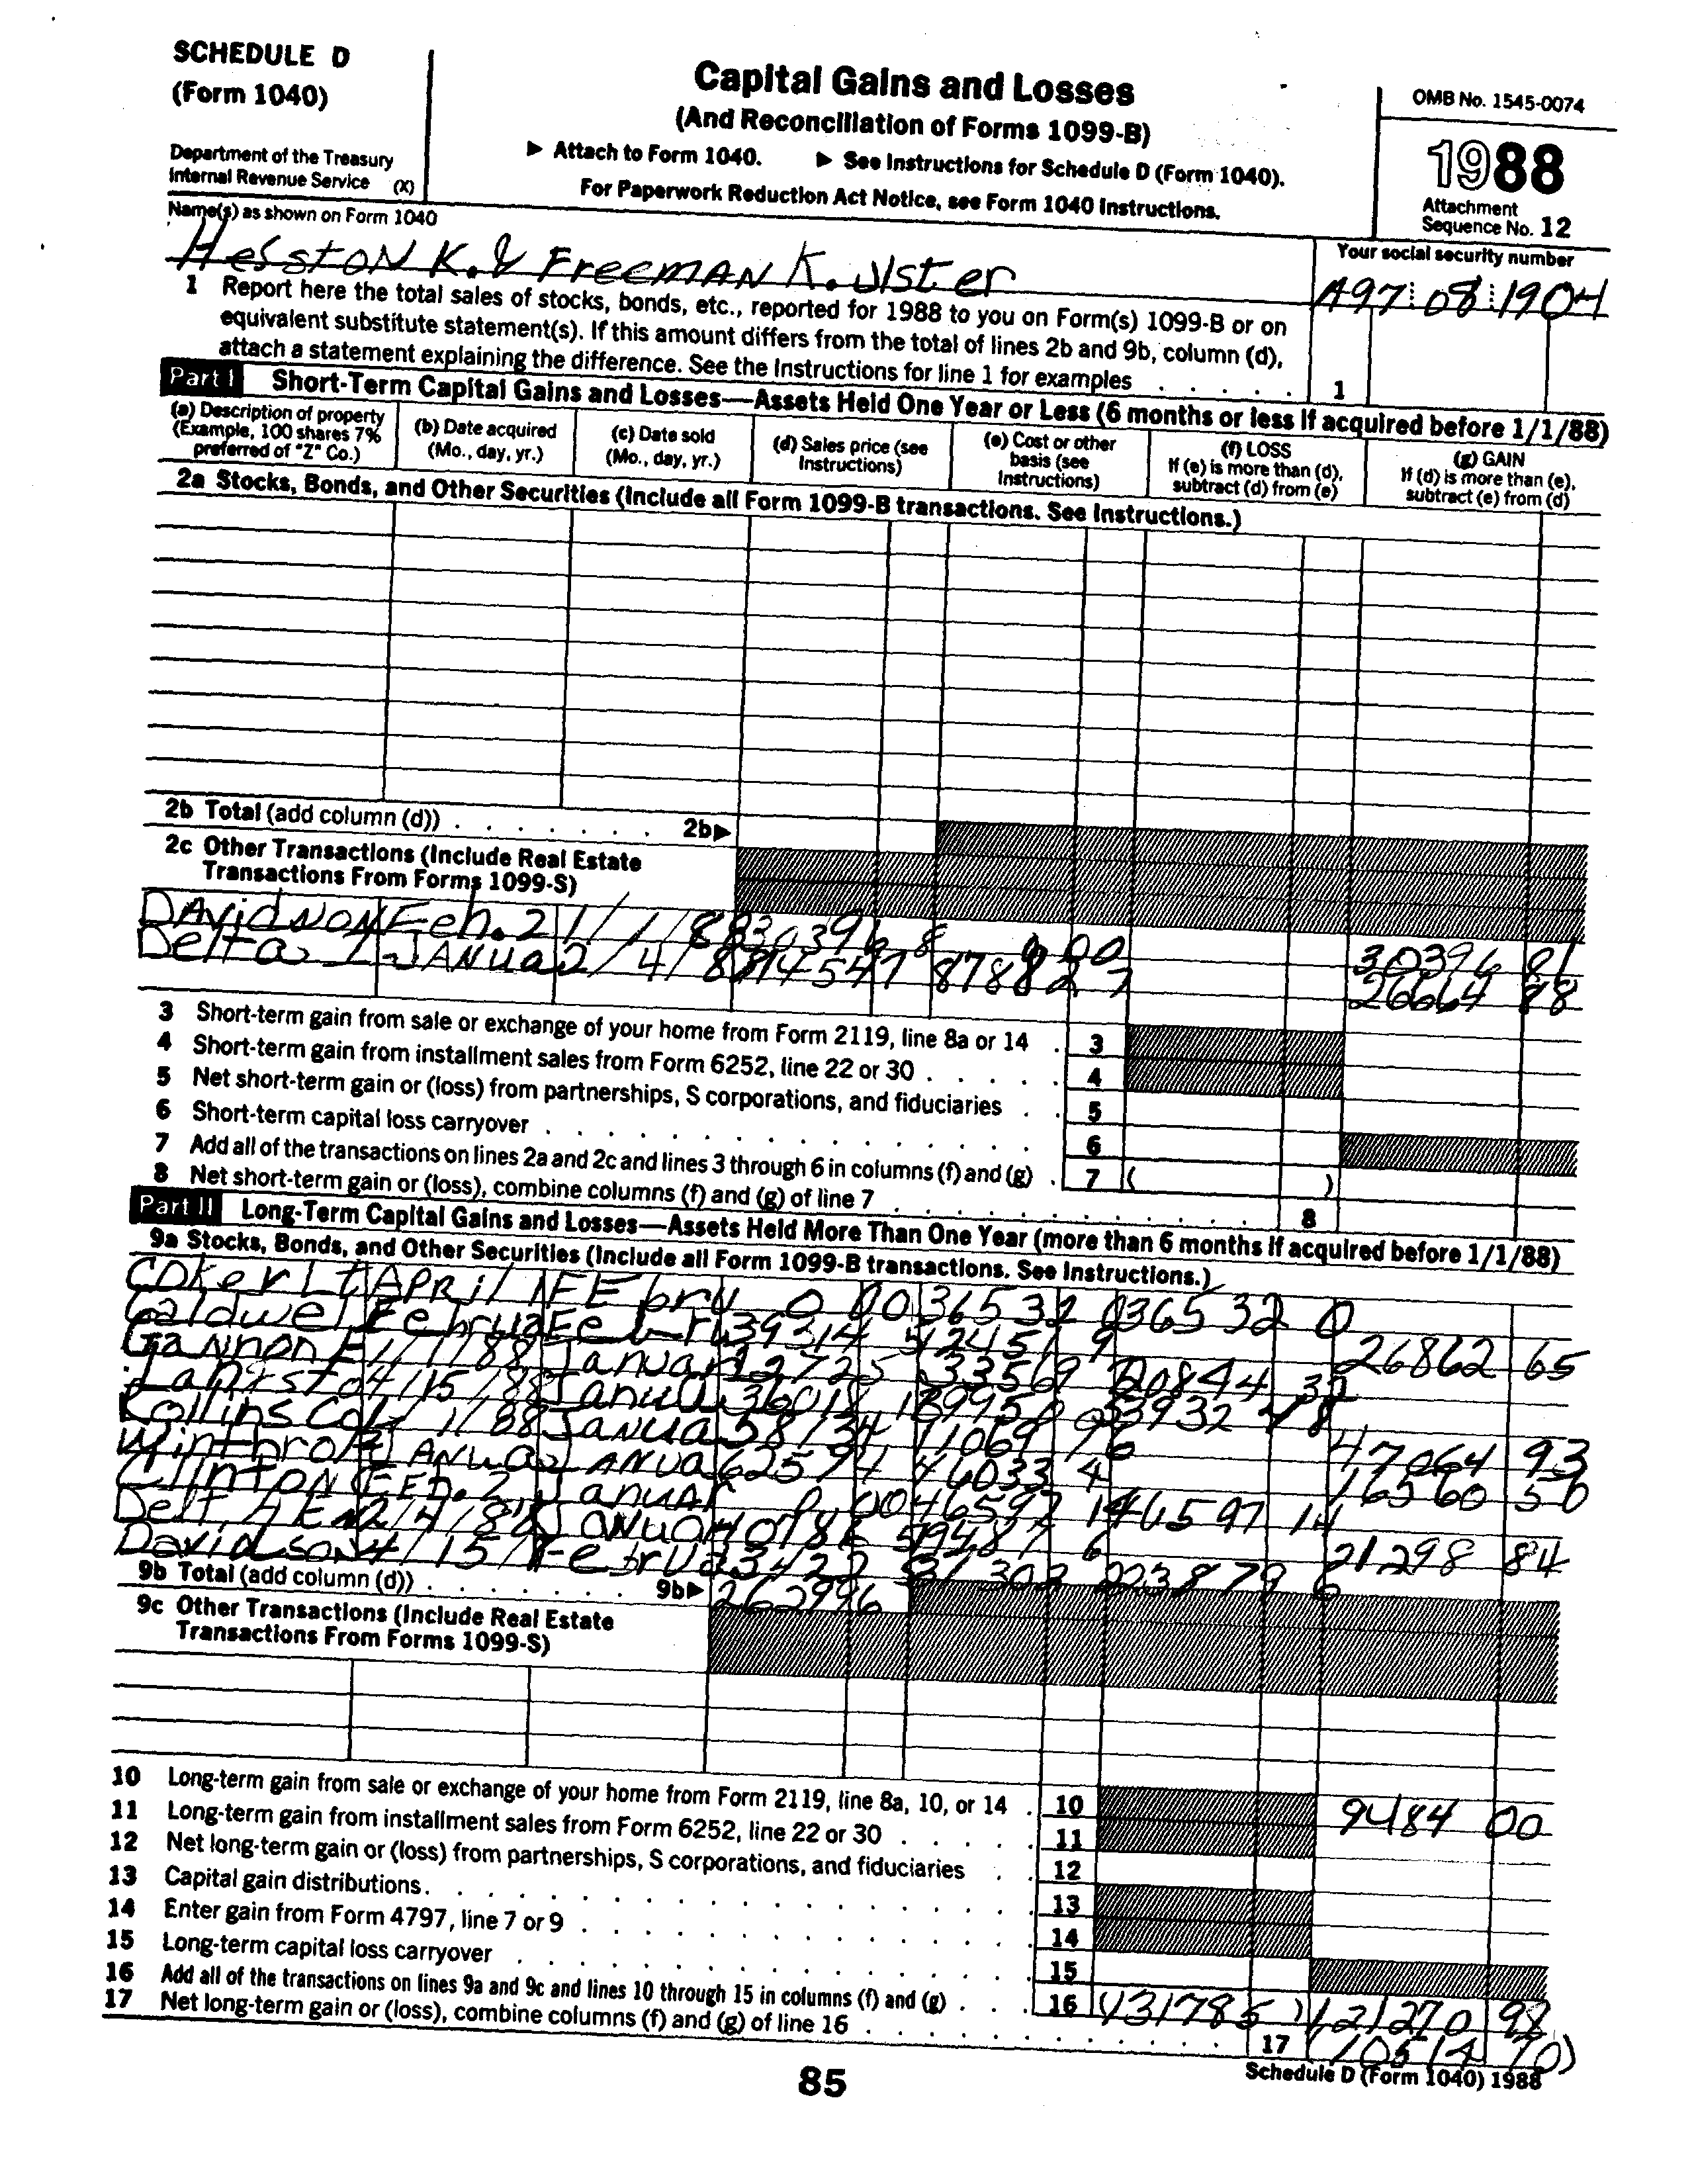 SCHEDULE D
(Form 1040)
Department of the Treasury
Internal Revenue Service (X)
Capital Gains and Losses
(And Reconciliation of Forms 1099-B)
▶ Attach to Form 1040. ▶ See Instructions for Schedule D (Form 1040).
For Paperwork Reduction Act Notice, see Form 1040 Instructions.
OMB No. 1545-0074
1988
Attachment
Sequence No. 12
Name(s) as shown on Form 1040
Your social security number
Hesston K. & Freeman K. Ulster
A97 08 1904
1 Report here the total sales of stocks, bonds, etc., reported for 1988 to you on Form(s) 1099-B or on
equivalent substitute statement(s). If this amount differs from the total of lines 2b and 9b, column (d),
attach a statement explaining the difference. See the Instructions for line 1 for examples . . . . . 1
Part I Short-Term Capital Gains and Losses—Assets Held One Year or Less (6 months or less if acquired before 1/1/88)
(a) Description of property
(Example, 100 shares 7%
preferred of "Z" Co.)
(b) Date acquired
(Mo., day, yr.)
(c) Date sold
(Mo., day, yr.)
(d) Sales price (see
Instructions)
(e) Cost or other
basis (see
Instructions)
(f) LOSS
If (e) is more than (d),
subtract (d) from (e)
(g) GAIN
If (d) is more than (e),
subtract (e) from (d)
2a Stocks, Bonds, and Other Securities (Include all Form 1099-B transactions. See Instructions.)
2b Total (add column (d)) . . . . . . . 2b▶
2c Other Transactions (Include Real Estate
Transactions From Forms 1099-S)
Davidson Feb. 2 1/1/88 30396 8 0 00 30396 81
Delta I Janua 2/4/88 14547 87882 7 26664 88
3 Short-term gain from sale or exchange of your home from Form 2119, line 8a or 14 . 3
4 Short-term gain from installment sales from Form 6252, line 22 or 30 . . . . . 4
5 Net short-term gain or (loss) from partnerships, S corporations, and fiduciaries . . 5
6 Short-term capital loss carryover . . . . . . . . . . . . . . 6
7 Add all of the transactions on lines 2a and 2c and lines 3 through 6 in columns (f) and (g) . 7 ( )
8 Net short-term gain or (loss), combine columns (f) and (g) of line 7 . . . . . . . . . . . . 8
Part II Long-Term Capital Gains and Losses—Assets Held More Than One Year (more than 6 months if acquired before 1/1/88)
9a Stocks, Bonds, and Other Securities (Include all Form 1099-B transactions. See Instructions.)
Coker Lt April 1 Febru 0 00 36532 0 36532 0
Caldwel Februa Febru 39314 5 12451 9 26862 65
Gannon E 1/1/88 Januar 12725 33569 20844 32
4/15/88 Janua 36018 89950 53932 48
Kollins Co 1/1/88 Janua 58134 11069 76 47064 93
Winthro Janua Janua 62594 46033 4 16560 50
Clinton Feb. 2 Januar 0 00 46597 1 46597 14
Delt A En 2/4/88 Januar 40786 19487 6 21298 84
Davidson 4/15/8 Februa 3422 27302 23879 6
9b Total (add column (d)) . . . . . . . 9b▶ 262996
9c Other Transactions (Include Real Estate
Transactions From Forms 1099-S)
10 Long-term gain from sale or exchange of your home from Form 2119, line 8a, 10, or 14 . 10 9484 00
11 Long-term gain from installment sales from Form 6252, line 22 or 30 . . . . . 11
12 Net long-term gain or (loss) from partnerships, S corporations, and fiduciaries . . 12
13 Capital gain distributions . . . . . . . . . . . . . . . . 13
14 Enter gain from Form 4797, line 7 or 9 . . . . . . . . . . . . . 14
15 Long-term capital loss carryover . . . . . . . . . . . . . . 15
16 Add all of the transactions on lines 9a and 9c and lines 10 through 15 in columns (f) and (g) . . . 16 (131785 ) 121270 92
17 Net long-term gain or (loss), combine columns (f) and (g) of line 16 . . . . . . . . . . . . 17 (10514 70)
85
Schedule D (Form 1040) 1988